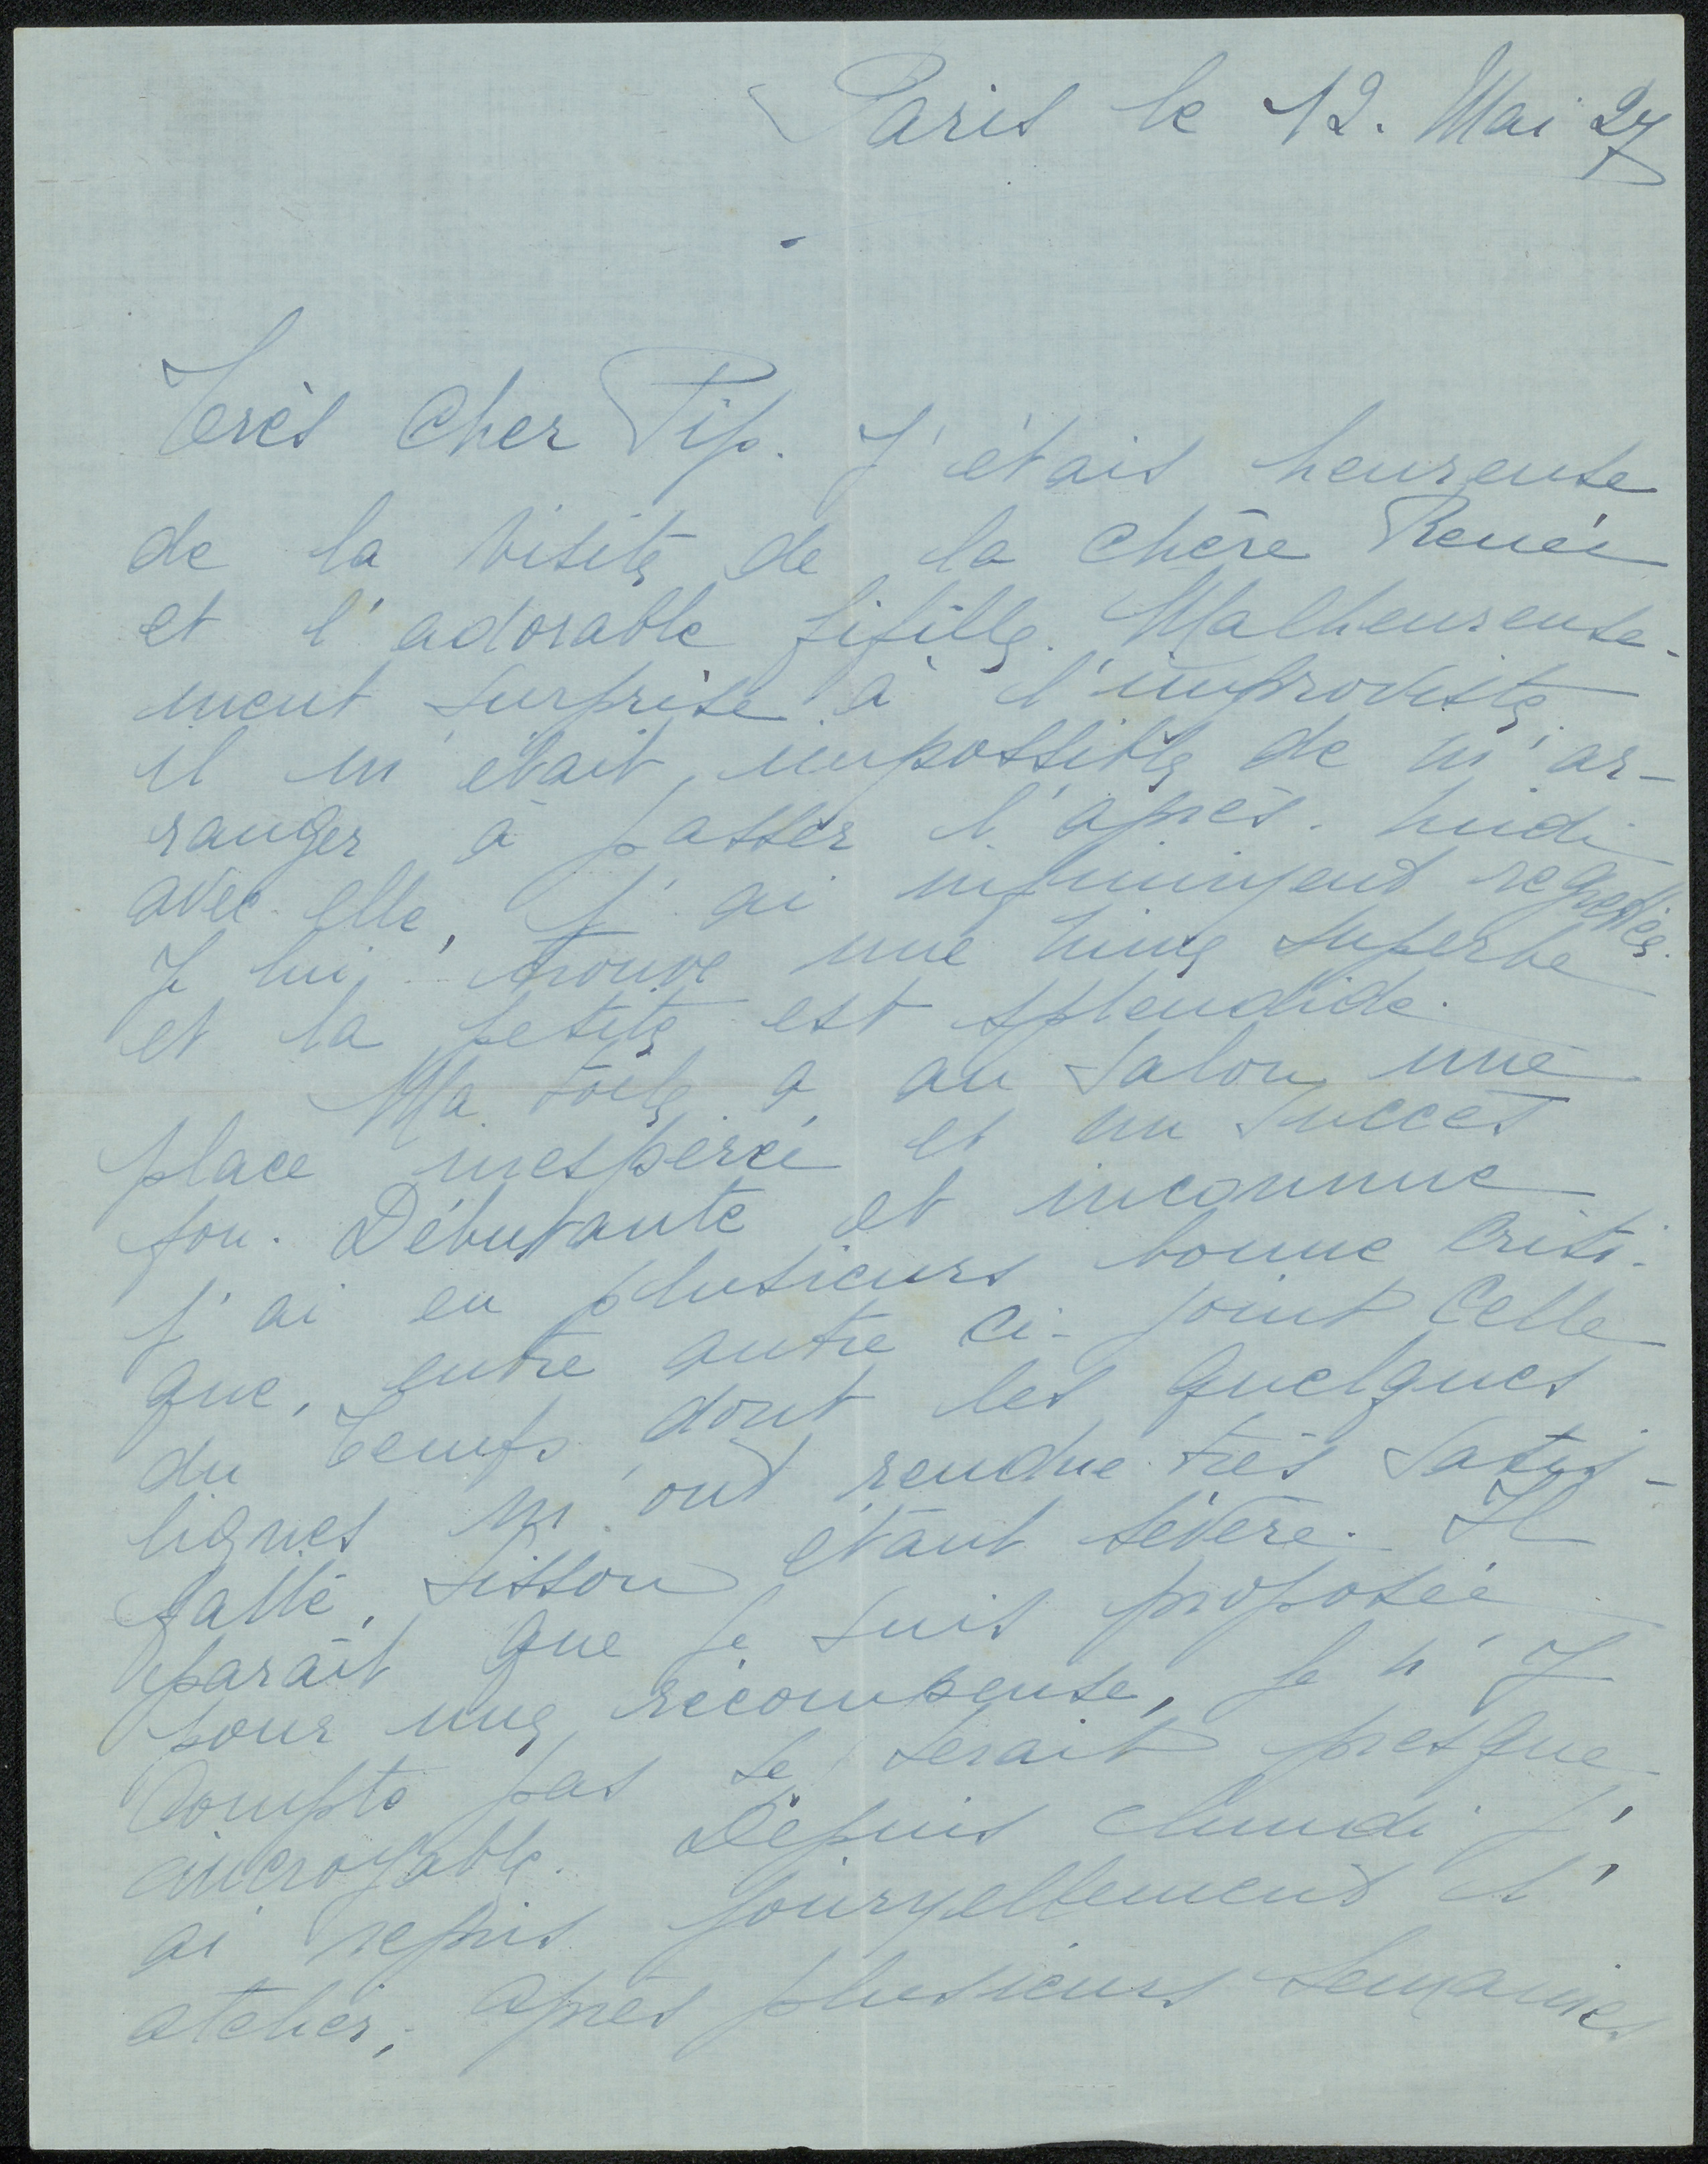 Paris le 12. Mai 27
Très Cher Pip. J'étais heureuse
de la visite de la chère Renée
et l'adorable fifille. Malheureuse-
ment surprise à l'improviste
il m'était impossible de m'ar-
ranger à passer l'après-midi
avec elle, j'ai infiniment regrettée.
Je lui trouve une mine superbe
et la petite est splendide.
Ma toile a au Salon une
place inesperée et un succès
fou. Débutante et inconnue
j'ai eu plusieurs bonne criti-
que, entre autre ci-joint celle
du Temps dont les quelques
lignes m'ont rendue très satis-
faite, Sisson étant sévère. Il
paraît que je suis proposée
pour une récompense, je n'y
compte pas se serait presque
incroyable. Depuis lundi j'
ai repris journellement l'
atelier, après plusieurs semaines